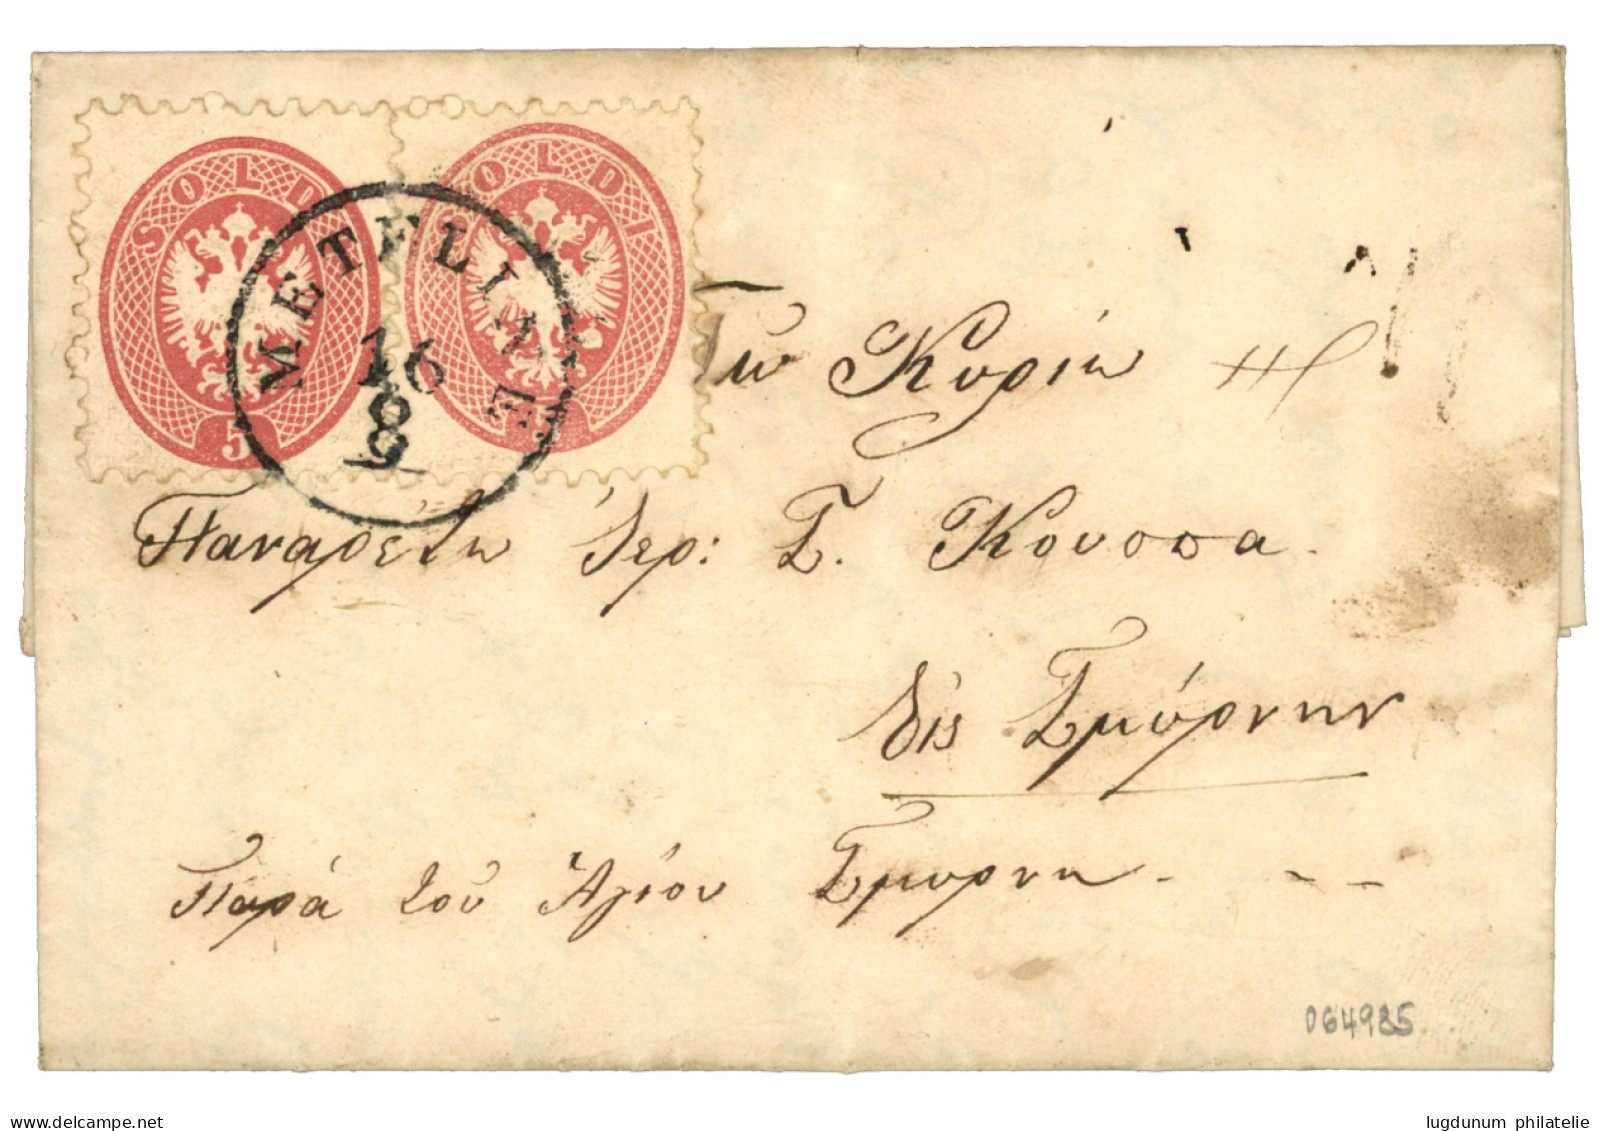 SOLDI SOLDI
5
METELLINE
16
8
Τῷ Κυρίῳ
Παναρέτῳ Ἱερ: Σ. Κουσσα.
εἰς Σμύρνην
Παρά τοῦ Ἁγίου Σμυρνη. - - -
064985
delcampe.net
lugdunum philatelie